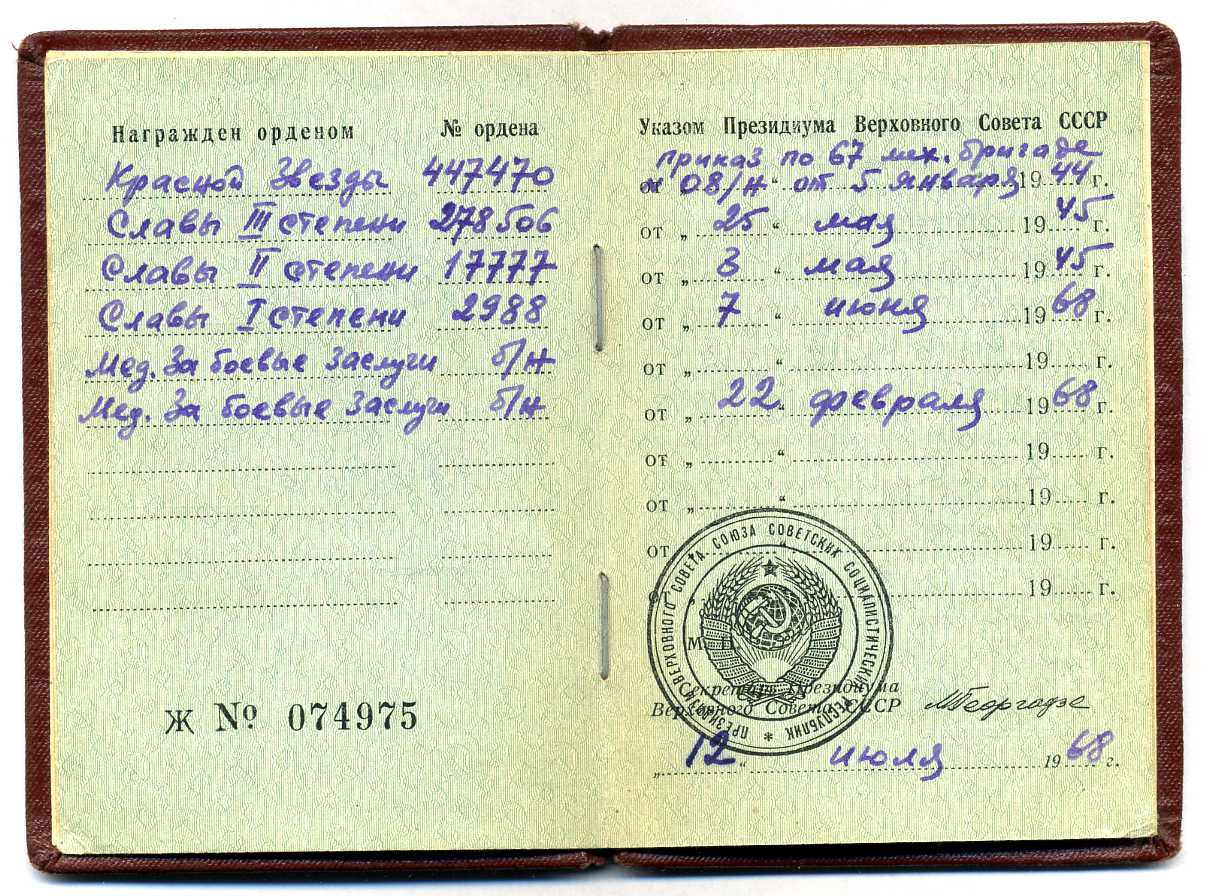 Награжден орденом № ордена
Красной Звезды 447470
Славы III степени 278506
Славы II степени 17777
Славы I степени 2988
Мед. За боевые заслуги б/н
Мед. За боевые заслуги б/н
Ж № 074975
Указом Президиума Верховного Совета СССР
приказ по 67 мех. бригаде
№ 08/н от 5 января 1944 г.
от „ 25 “ мая 1945 г.
от „ 3 “ мая 1945 г.
от „ 7 “ июня 1968 г.
от „ “ 19 г.
от „ 22 “ февраля 1968 г.
от „ “ 19 г.
от „ “ 19 г.
от „ “ 19 г.
от „ “ 19 г.
ПРЕЗИДИУМ ВЕРХОВНОГО СОВЕТА СОЮЗА СОВЕТСКИХ СОЦИАЛИСТИЧЕСКИХ РЕСПУБЛИК
М. П.
Секретарь Президиума
Верховного Совета СССР МГеоргадзе
„ 12 “ июля 1968 г.